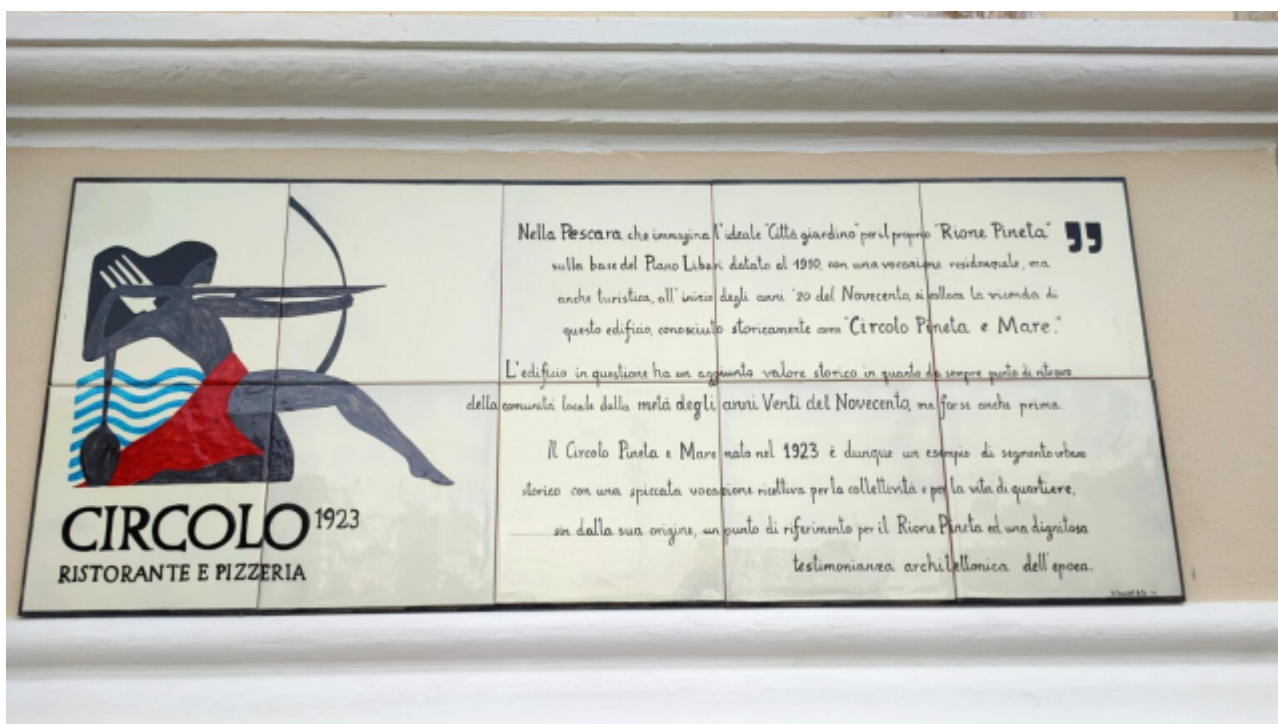 Nella Pescara che immagina l'ideale "Città giardino" per il proprio "Rione Pineta"
sulla base del Piano Liberi datato al 1910, con una vocazione residenziale, ma
anche turistica, all'inizio degli anni '20 del Novecento, si colloca la vicenda di
questo edificio, conosciuto storicamente come "Circolo Pineta e Mare."
L'edificio in questione ha un aggiunto valore storico in quanto da sempre punto di ritrovo
della comunità locale dalla metà degli anni Venti del Novecento, ma forse anche prima.
Il Circolo Pineta e Mare nato nel 1923 è dunque un esempio di segmento urbano
storico con una spiccata vocazione ricettiva per la collettività e per la vita di quartiere,
sin dalla sua origine, un punto di riferimento per il Rione Pineta ed una dignitosa
testimonianza architettonica dell'epoca.
CIRCOLO 1923
RISTORANTE E PIZZERIA